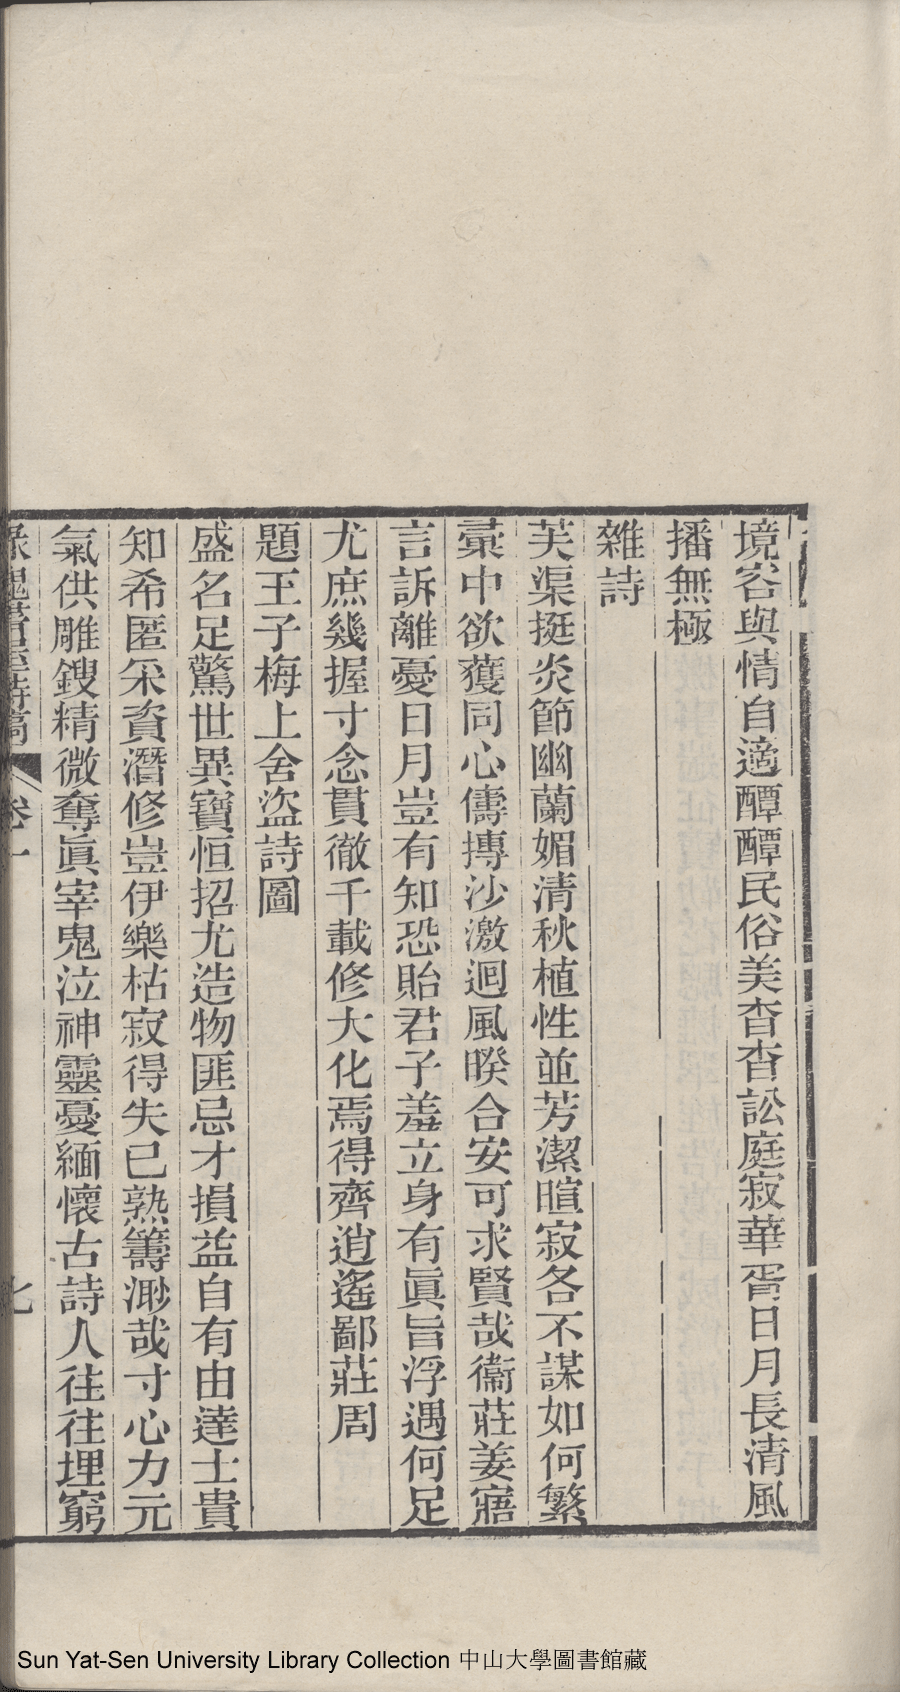 境峉與情自適醰醰民俗美杳杳訟庭寂華胥日月長清風
播無極
雜詩
芙渠挺炎節幽蘭媚清秋植性並芳潔暄寂各不謀如何繁
槀中欲獲同心儔摶沙激迴風暌合安可求賢哉衞莊姜寤
言訴離憂日月豈有知恐貽君子羞立身有眞旨浮遇何足
尤庶幾握寸念貫徹千載修大化焉得齊逍遙鄙莊周
題王子梅上舍盜詩圖
盛名足驚世異寶恒招尤造物匪忌才損益自有由達士貴
知希匿采資潛修豈伊樂枯寂得失已熟籌渺哉寸心力元
氣供雕鎪精微奪眞宰鬼泣神靈憂緬懷古詩人往往埋窮
書屋詩稿 卷一 七
Sun Yat-Sen University Library Collection 中山大學圖書館藏